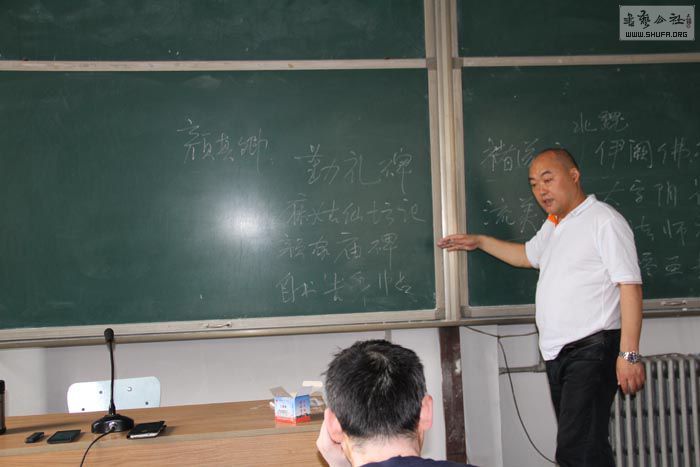 书艺公社
WWW.SHUFA.ORG
颜真卿:
勤礼碑
麻姑仙坛记
颜家庙碑
自书告身帖
北魏
褚遂
伊阙佛
流美
大字阴
法师